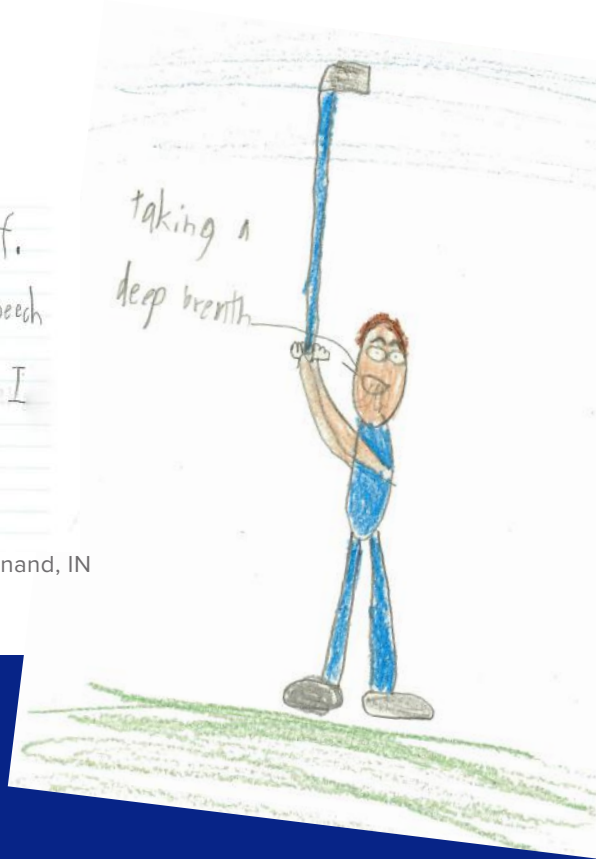 f.
peech
I
nand, IN
taking a
deep breath